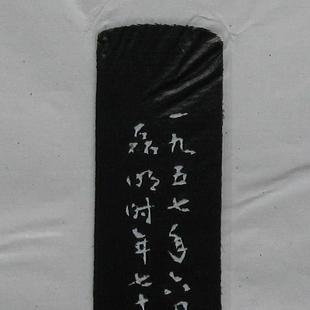 一九五七年六月
磊明时年七十